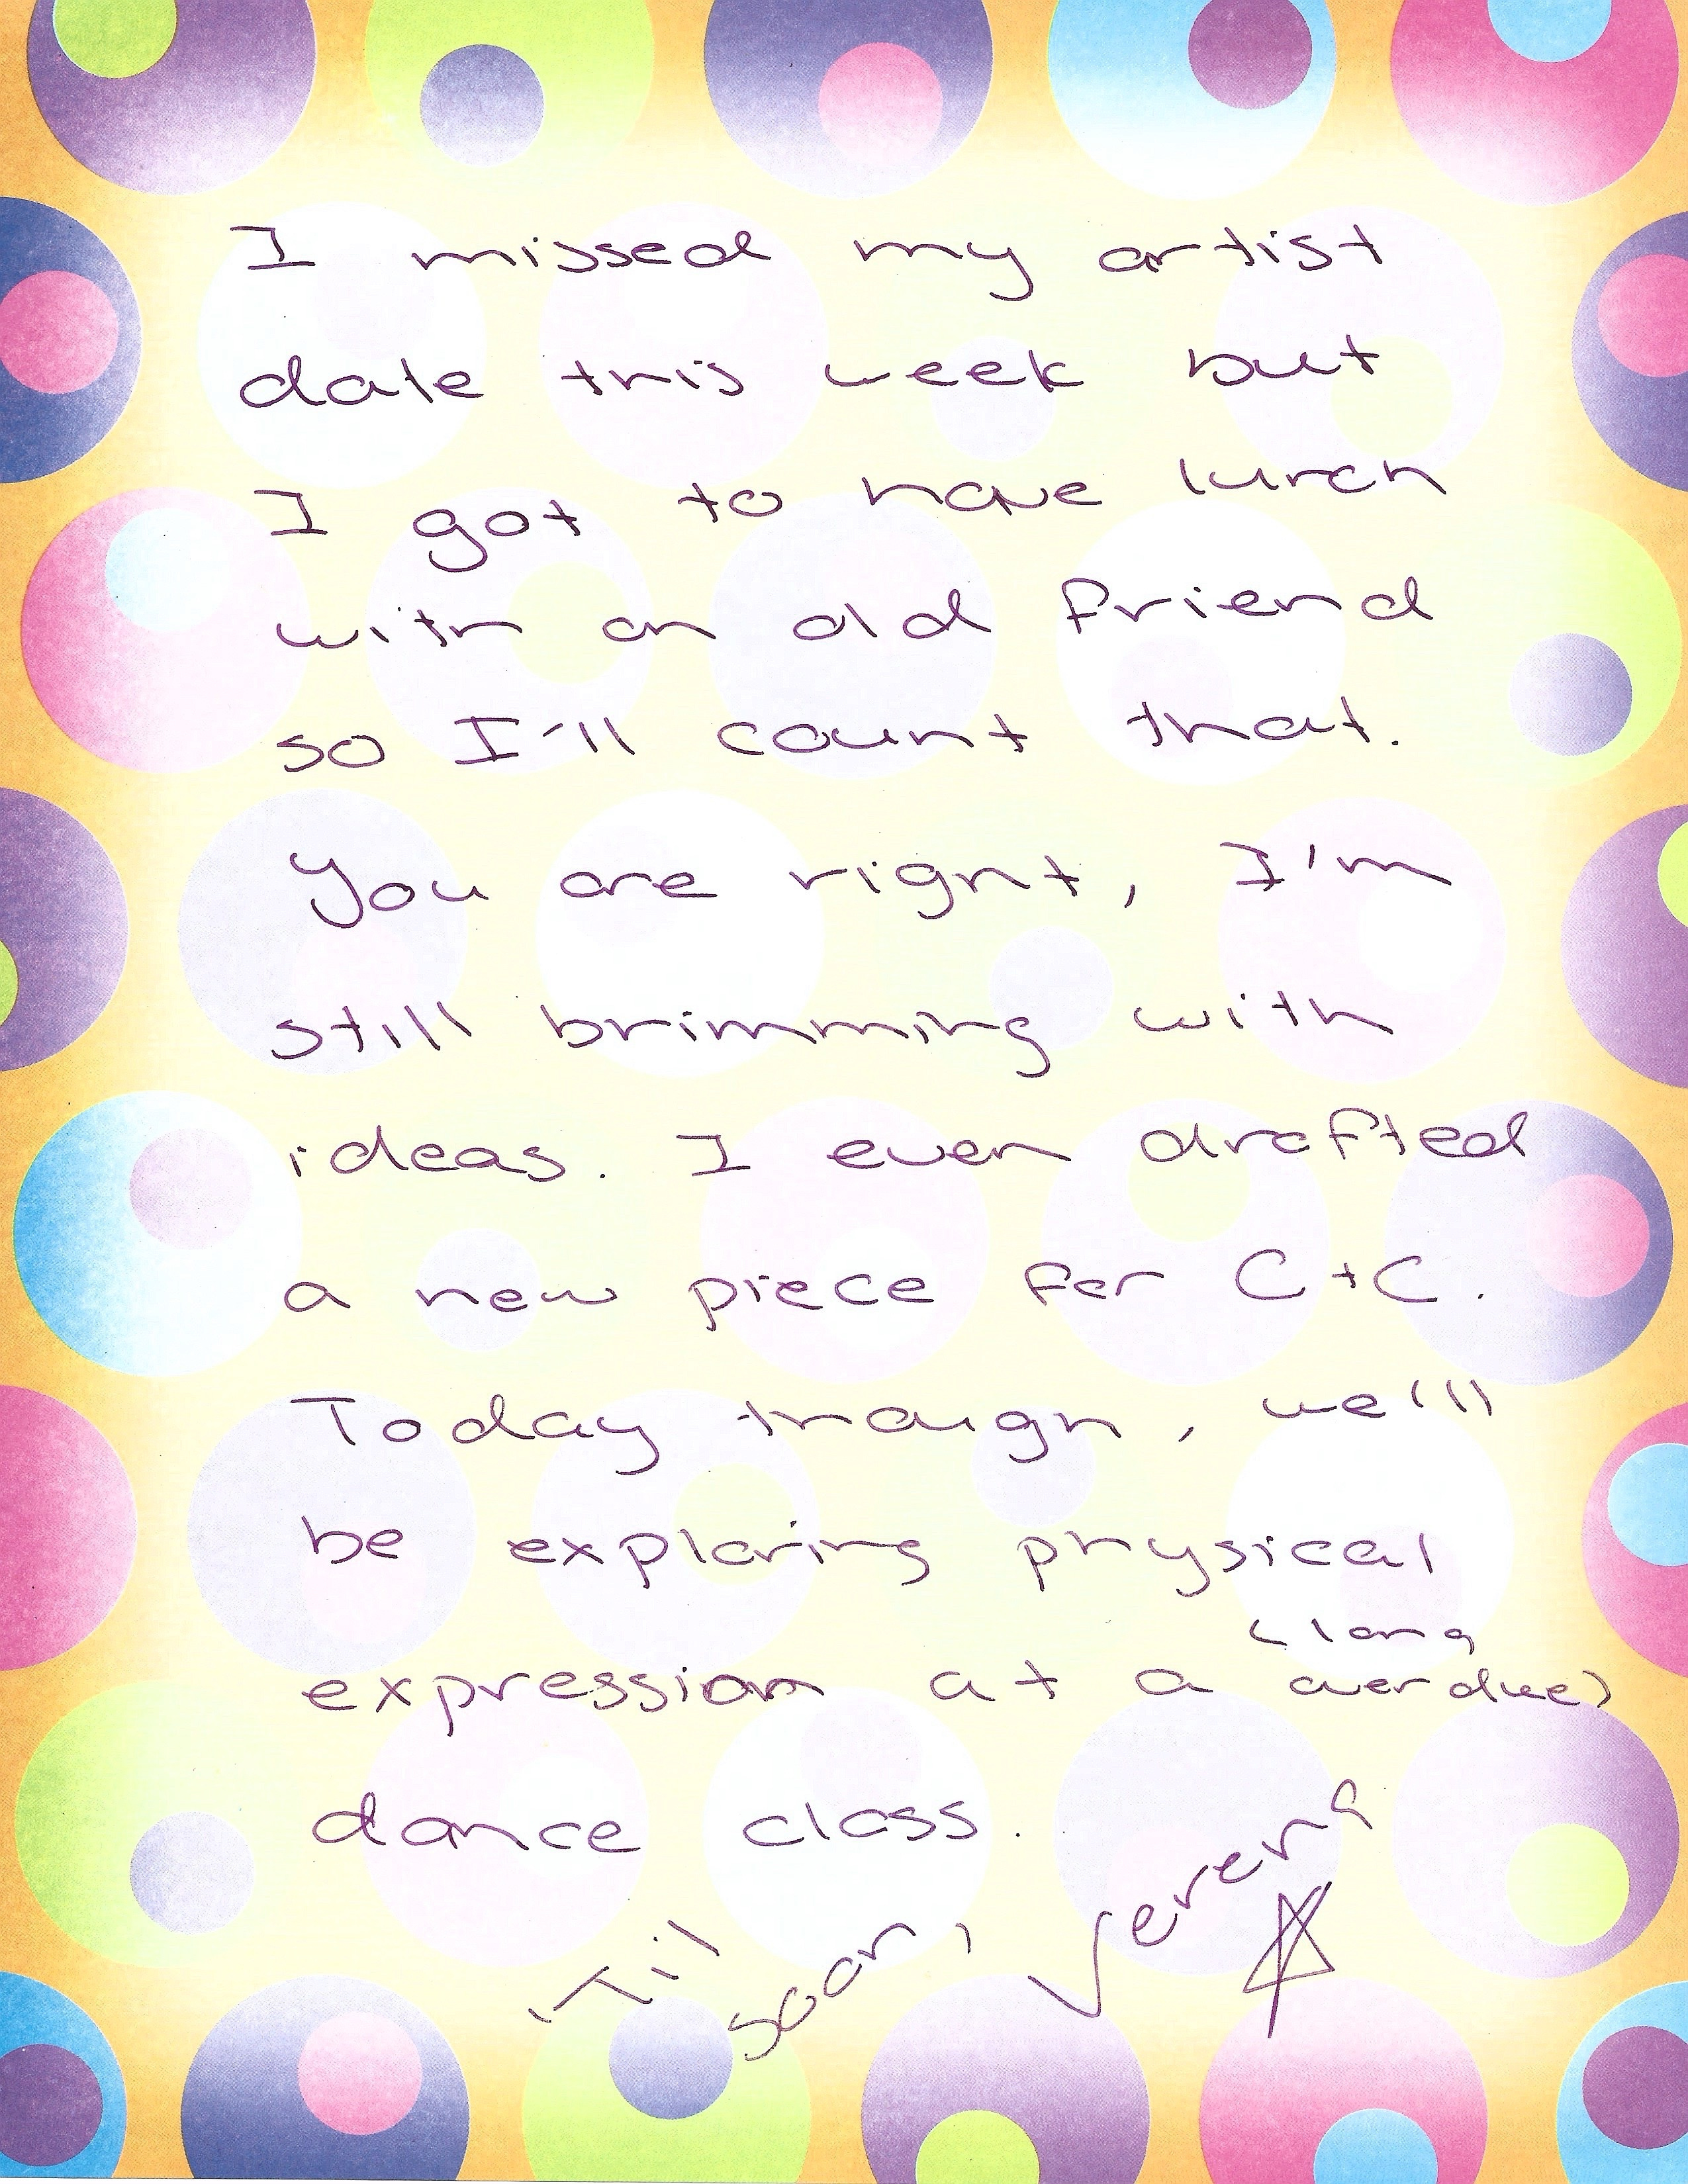 I missed my artist
date this week but
I got to have lunch
with an old friend
so I'll count that.
You are right, I'm
still brimming with
ideas. I even drafted
a new piece for C+C.
Today though, we'll
be exploring physical
(long
expression at a overdue)
dance class.
'Til soon, Verena